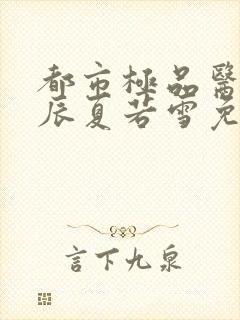 都市極品醫
辰夏若雪免
言下九泉